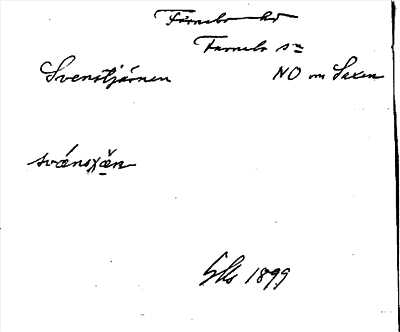 Färnebo hd
Farnebo sn
Svenstjärnen NO om Saxen
svä́nsχǟn
1899